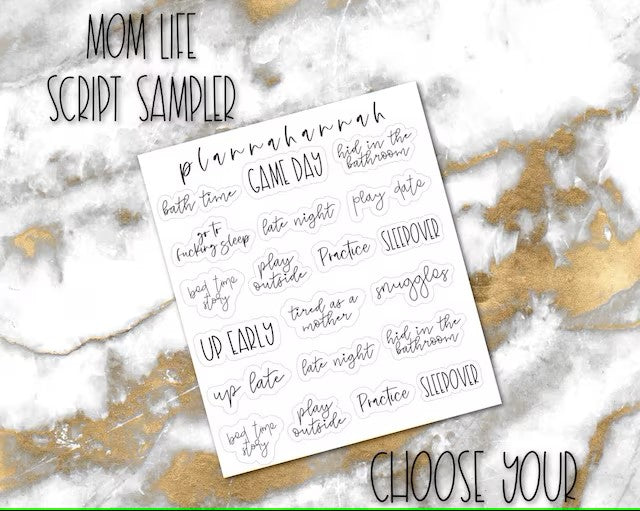 MOM LIFE
SCRIPT SAMPLER
plannahannah
bath time
GAME DAY
hid in the
bathroom
go to
fucking sleep
late night
play date
bed time
story
play
outside
Practice
SLEEPOVER
UP EARLY
tired as a
mother
snuggles
up late
late night
hid in the
bathroom
bed time
story
play
outside
Practice
SLEEPOVER
CHOOSE YOUR